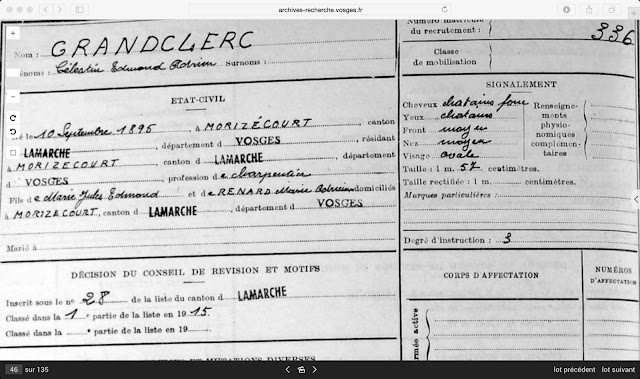 archives-recherche.vosges.fr
Nom : GRANDCLERC
Prénoms : Célestin Edmond Adrien Surnoms :
ETAT-CIVIL
Né le 10 Septembre 1895, à MORIZÉCOURT, canton
LAMARCHE, département d VOSGES, résidant
à MORIZECOURT, canton d LAMARCHE, département
d VOSGES, profession de charpentier
Fils de Marie Jules Edmond et de RENARD Marie domiciliés
à MORIZECOURT, canton d LAMARCHE, département d VOSGES
Marié à
DÉCISION DU CONSEIL DE REVISION ET MOTIFS
Inscrit sous le nº 28 de la liste du canton d LAMARCHE
Classé dans la 1 e partie de la liste en 1915.
Classé dans la e partie de la liste en 19
ET MUTATIONS DIVERSES
Numéro matricule
du recrutement : 336
Classe
de mobilisation
SIGNALEMENT
Cheveux chatains foncé
Yeux chatains
Front moyen
Nez moyen
Visage ovale
Renseigne-
ments
physio-
nomiques
complémen-
taires
Taille : 1 m. 57 centimètres.
Taille rectifiée : 1 m. centimètres.
Marques particulières :
Degré d'instruction : 3
CORPS D'AFFECTATION
NUMÉROS
D'AFFECTATION
armée active
46 sur 135
lot précédent lot suivant